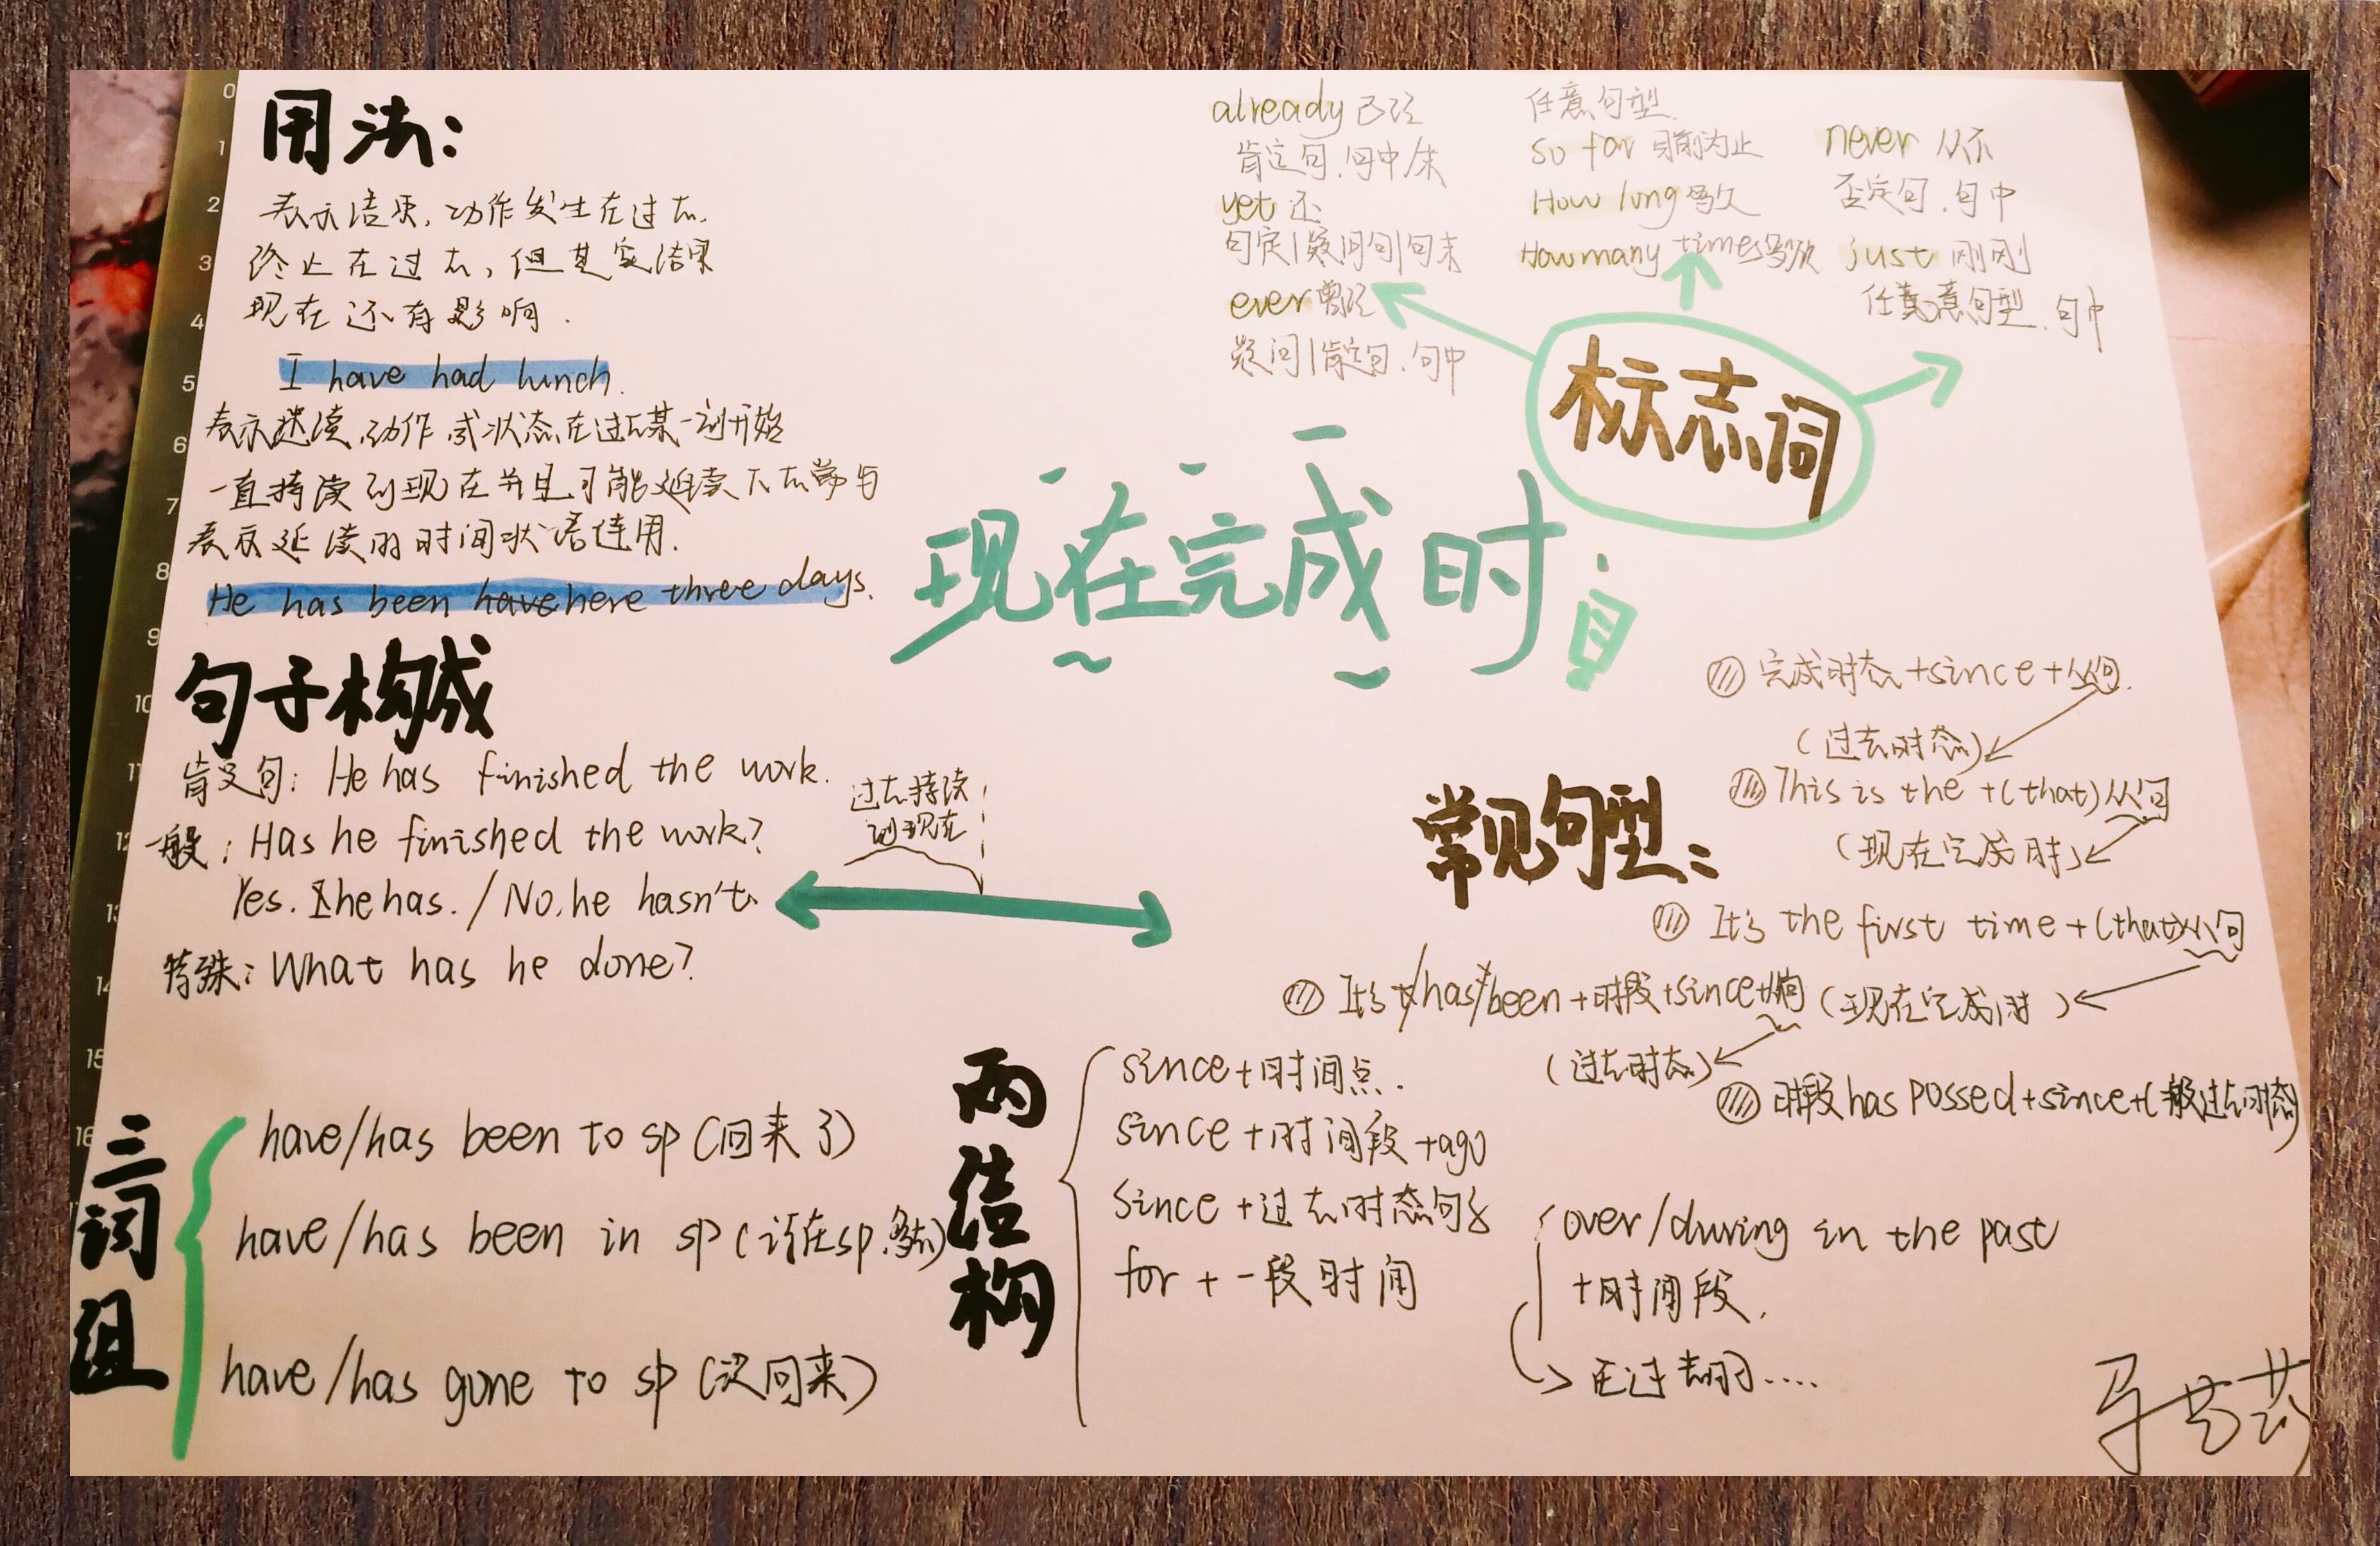 用法:
表示结果,动作发生在过去,
终止在过去,但其实结果
现在还有影响.
I have had lunch.
表示持续,动作或状态在过去某一刻开始
一直持续到现在并且可能延续下去常与
表示延续的时间状语连用.
He has been here three days.
句子构成
肯定句: He has finished the work.
一般: Has he finished the work?
Yes. he has. / No, he hasn't.
特殊: What has he done?
过去持续
到现在
三词组
have/has been to sp (回来了)
have/has been in sp (待在sp.多久)
have/has gone to sp (没回来)
现在完成时
标志词
already 已经
肯定句.句中/末
yet 还
否定|疑问句|句末
ever 曾经
疑问|肯定句.句中
任意句型
so far 目前为止
How long 多久
How many times 多少次
never 从不
否定句.句中
just 刚刚
任意句型.句中
常见句型:
完成时态+since+从句.
(过去时态)
This is the +(that)从句
(现在完成时)
It's the first time +(that)从句
(现在完成时)
It's /has been +时段+since+从句
(过去时态)
时段 has possed+since+(一般过去时态)
两结构
since+时间点.
since +时间段 +ago
since +过去时态句子
for + 一段时间
over/during in the past
+时间段.
在过去时间....